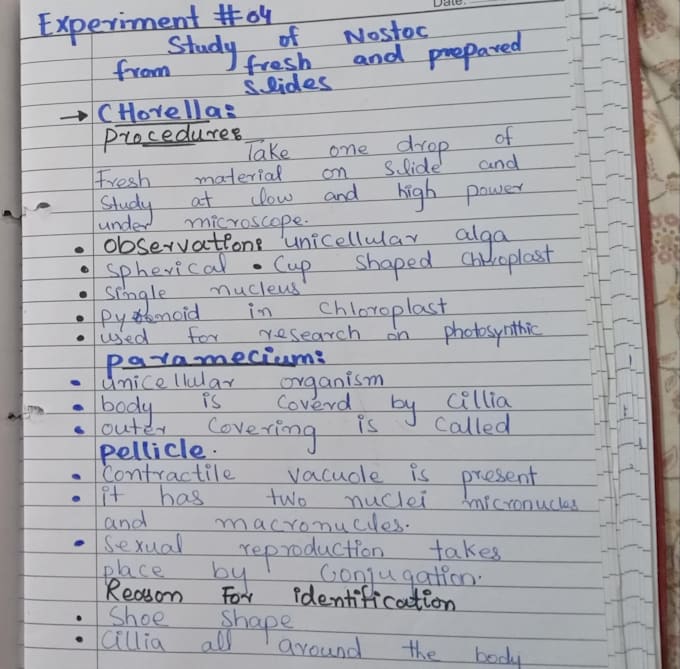 Date:
Experiment #04
Study of Nostoc
from fresh and prepared
slides
→ CHorella:
Procedures
Take one drop of
Fresh material on Sslide and
Study at low and high power
under microscope.
• observation: unicellular alga
• Spherical • Cup shaped chloroplast
• single nucleus
• Pyrenoid in chloroplast
• used for research on photosynthic
Paramecium:
• Unicellular organism
• body is coverd by cillia
• outer covering is called
pellicle.
• Contractile vacuole is present
• it has two nuclei micronucles
and macronucles.
• Sexual reproduction takes
place by conjugation.
Reason For identification
• Shoe shape
• Cillia all around the body